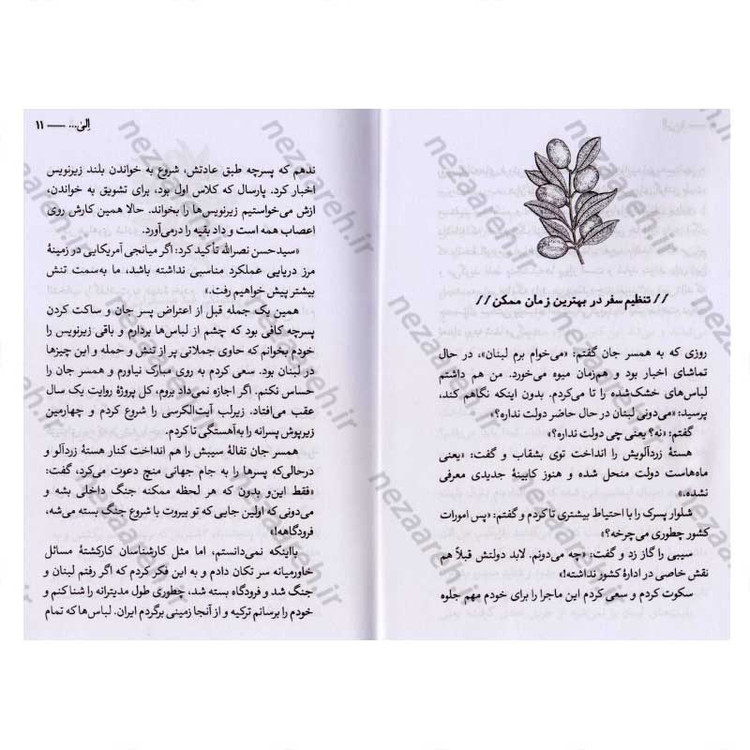 // تنظیم سفر در بهترین زمان ممکن //
روزی که به همسر جان گفتم: «می‌خوام برم لبنان»، در حال
تماشای اخبار بود و هم‌زمان میوه می‌خورد. من هم داشتم
لباس‌های خشک‌شده را تا می‌کردم. بدون اینکه نگاهم کند،
پرسید: «می‌دونی لبنان در حال حاضر دولت نداره؟»
گفتم: «نه؟ یعنی چی دولت نداره؟»
هستهٔ زردآلویش را انداخت توی بشقاب و گفت: «یعنی
ماه‌هاست دولت منحل شده و هنوز کابینهٔ جدیدی معرفی
نشده.»
شلوار پسرک را با احتیاط بیشتری تا کردم و گفتم: «پس امورات
کشور چطوری می‌چرخه؟»
سیبی را گاز زد و گفت: «چه می‌دونم. لابد دولتش قبلاً هم
نقش خاصی در ادارهٔ کشور نداشته!»
سکوت کردم و سعی کردم این ماجرا را برای خودم مهم جلوه
اِلیٰ... — ۱۱
ندهم که پسرچه طبق عادتش، شروع به خواندن بلند زیرنویس
اخبار کرد. پارسال که کلاس اول بود، برای تشویق به خواندن،
ازش می‌خواستیم زیرنویس‌ها را بخواند. حالا همین کارش روی
اعصاب همه است و داد بقیه را درمی‌آورد.
«سیدحسن نصرالله تأکید کرد: اگر میانجی آمریکایی در زمینهٔ
مرز دریایی عملکرد مناسبی نداشته باشد، ما به‌سمت تنش
بیشتر پیش خواهیم رفت.»
همین یک جمله قبل از اعتراض پسر جان و ساکت کردن
پسرچه کافی بود که چشم از لباس‌ها بردارم و باقی زیرنویس را
خودم بخوانم که حاوی جملاتی پر از تنش و حمله و این چیزها
در لبنان بود. سعی کردم به روی مبارک نیاورم و همسر جان را
حساس نکنم. اگر اجازه نمی‌داد بروم، کل پروژهٔ روایت یک سال
عقب می‌افتاد. زیرلب آیت‌الکرسی را شروع کردم و چهارمین
زیرپوش پسرانه را به‌آهستگی تا کردم.
همسر جان تفالهٔ سیبش را هم انداخت کنار هستهٔ زردآلو و
درحالی‌که پسرها را به جام جهانی منچ دعوت می‌کرد، گفت:
«فقط این‌و بدون که هر لحظه ممکنه جنگ داخلی بشه و
می‌دونی که اولین جایی که تو بیروت با شروع جنگ بسته می‌شه،
فرودگاهه!»
بااینکه نمی‌دانستم، اما مثل کارشناسان کارکشتهٔ مسائل
خاورمیانه سر تکان دادم و به این فکر کردم که اگر رفتم لبنان و
جنگ شد و فرودگاه بسته شد، چطوری طول مدیترانه را شنا کنم و
خودم را برسانم ترکیه و از آنجا زمینی برگردم ایران. لباس‌ها که تمام
nezaareh.ir
nezaareh.ir
nezaareh.ir
nezaareh.ir
nezaareh.ir
nezaareh.ir